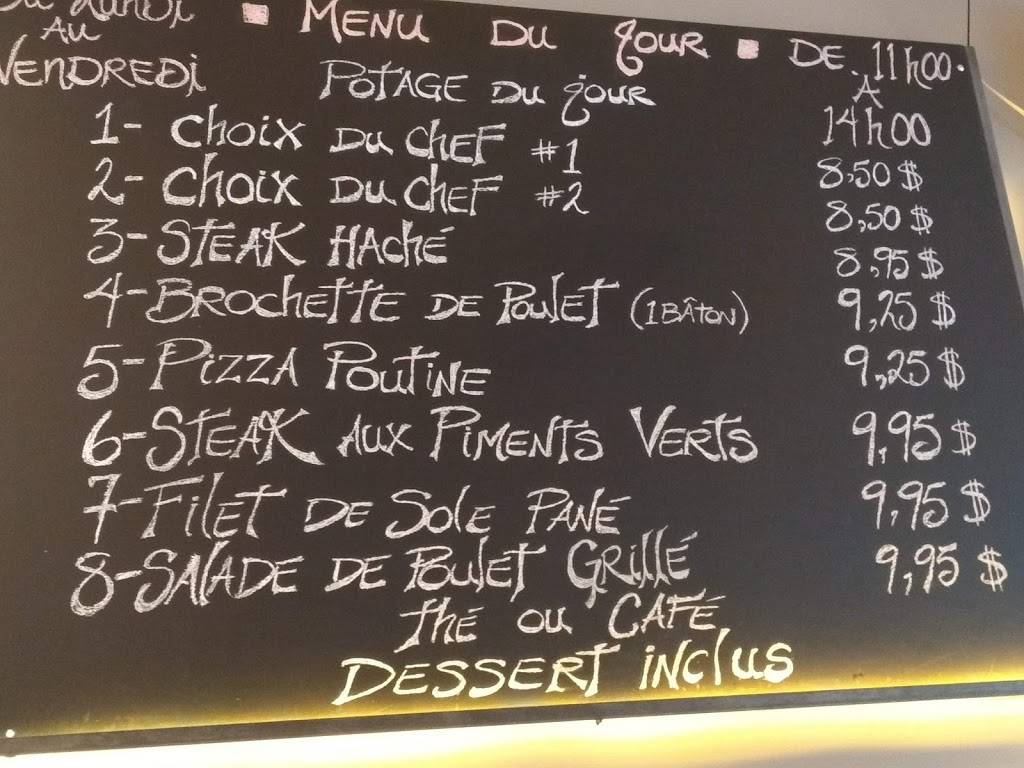 Du Lundi
Au
Vendredi
Menu Du Jour
De 11h00.
À
14h00
Potage Du jour
1- Choix Du Chef #1 8,50 $
2- Choix Du Chef #2 8,50 $
3- Steak Haché 8,95 $
4- Brochette De Poulet (1 Bâton) 9,25 $
5- Pizza Poutine 9,25 $
6- Steak aux Piments Verts 9,95 $
7- Filet De Sole Pané 9,95 $
8- Salade De Poulet Grillé 9,95 $
Thé ou Café
Dessert inclus